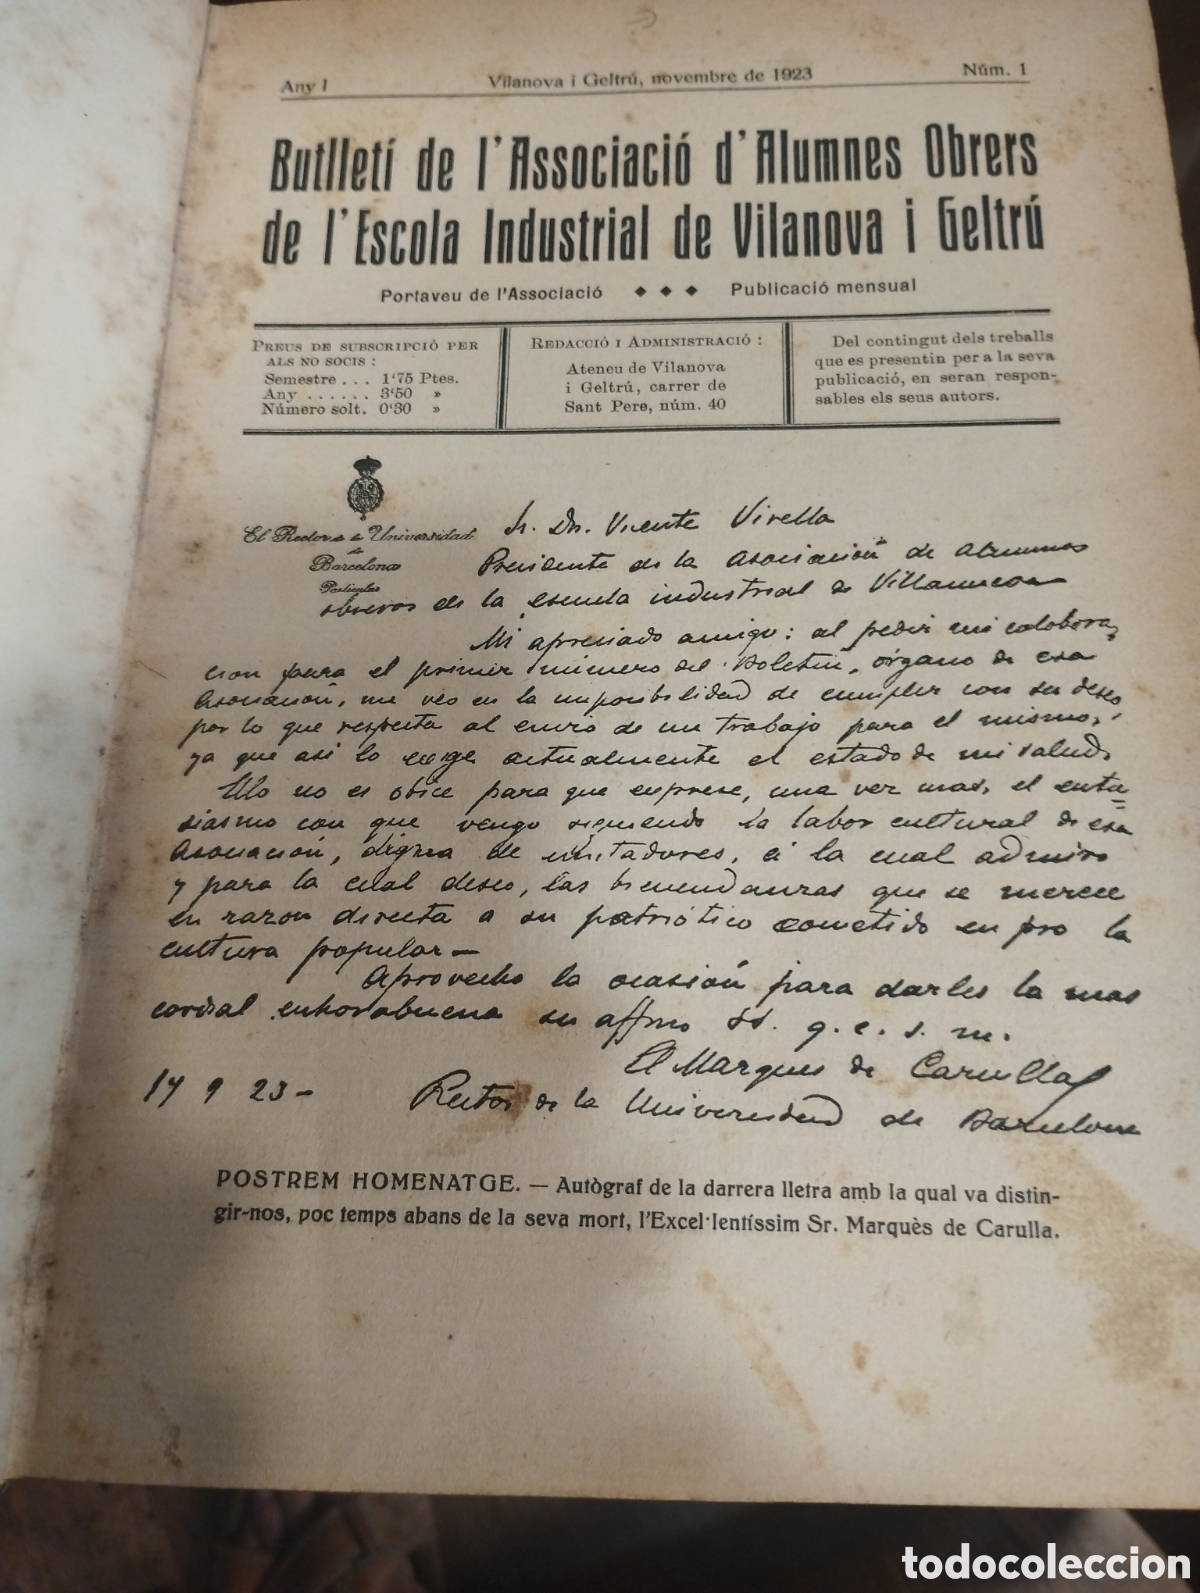 Any I
Vilanova i Geltrú, novembre de 1923
Núm. 1
Butlletí de l'Associació d'Alumnes Obrers
de l'Escola Industrial de Vilanova i Geltrú
Portaveu de l'Associació ◆ ◆ ◆ Publicació mensual
PREUS DE SUBSCRIPCIÓ PER
ALS NO SOCIS :
Semestre . . . 1'75 Ptes.
Any . . . . . . 3'50 »
Número solt. 0'30 »
REDACCIÓ I ADMINISTRACIÓ :
Ateneu de Vilanova
i Geltrú, carrer de
Sant Pere, núm. 40
Del contingut dels treballs
que es presentin per a la seva
publicació, en seran respon-
sables els seus autors.
El Rector de la Universidad
de
Barcelona
Particular
Sr. Dn. Vicente Virella
Presidente de la Asociación de Alumnos
obreros de la escuela industrial de Villanueva
Mi apreciado amigo: al pedir mi colabora-
cion para el primer número del Boletin, órgano de esa
Asociación, me veo en la imposibilidad de cumplir con su deseo
por lo que respecta al envio de un trabajo para el mismo,
ya que asi lo exige actualmente el estado de mi salud.
Ello no es obice para que exprese, una vez mas, el entu-
siasmo con que vengo siguiendo la labor cultural de esa
Asociación, digna de imitadores, á la cual admiro
y para la cual deseo, las bienandanzas que se merece
en razon directa a su patriótico cometido en pro la
cultura popular -
Aprovecho la ocasión para darles la mas
cordial enhorabuena su affmo SS. q. e. s. m.
El Marques de Carulla
17 9 23 - Rector de la Universidad de Barcelona
POSTREM HOMENATGE. — Autògraf de la darrera lletra amb la qual va distin-
gir-nos, poc temps abans de la seva mort, l'Excel·lentíssim Sr. Marquès de Carulla.
todocoleccion